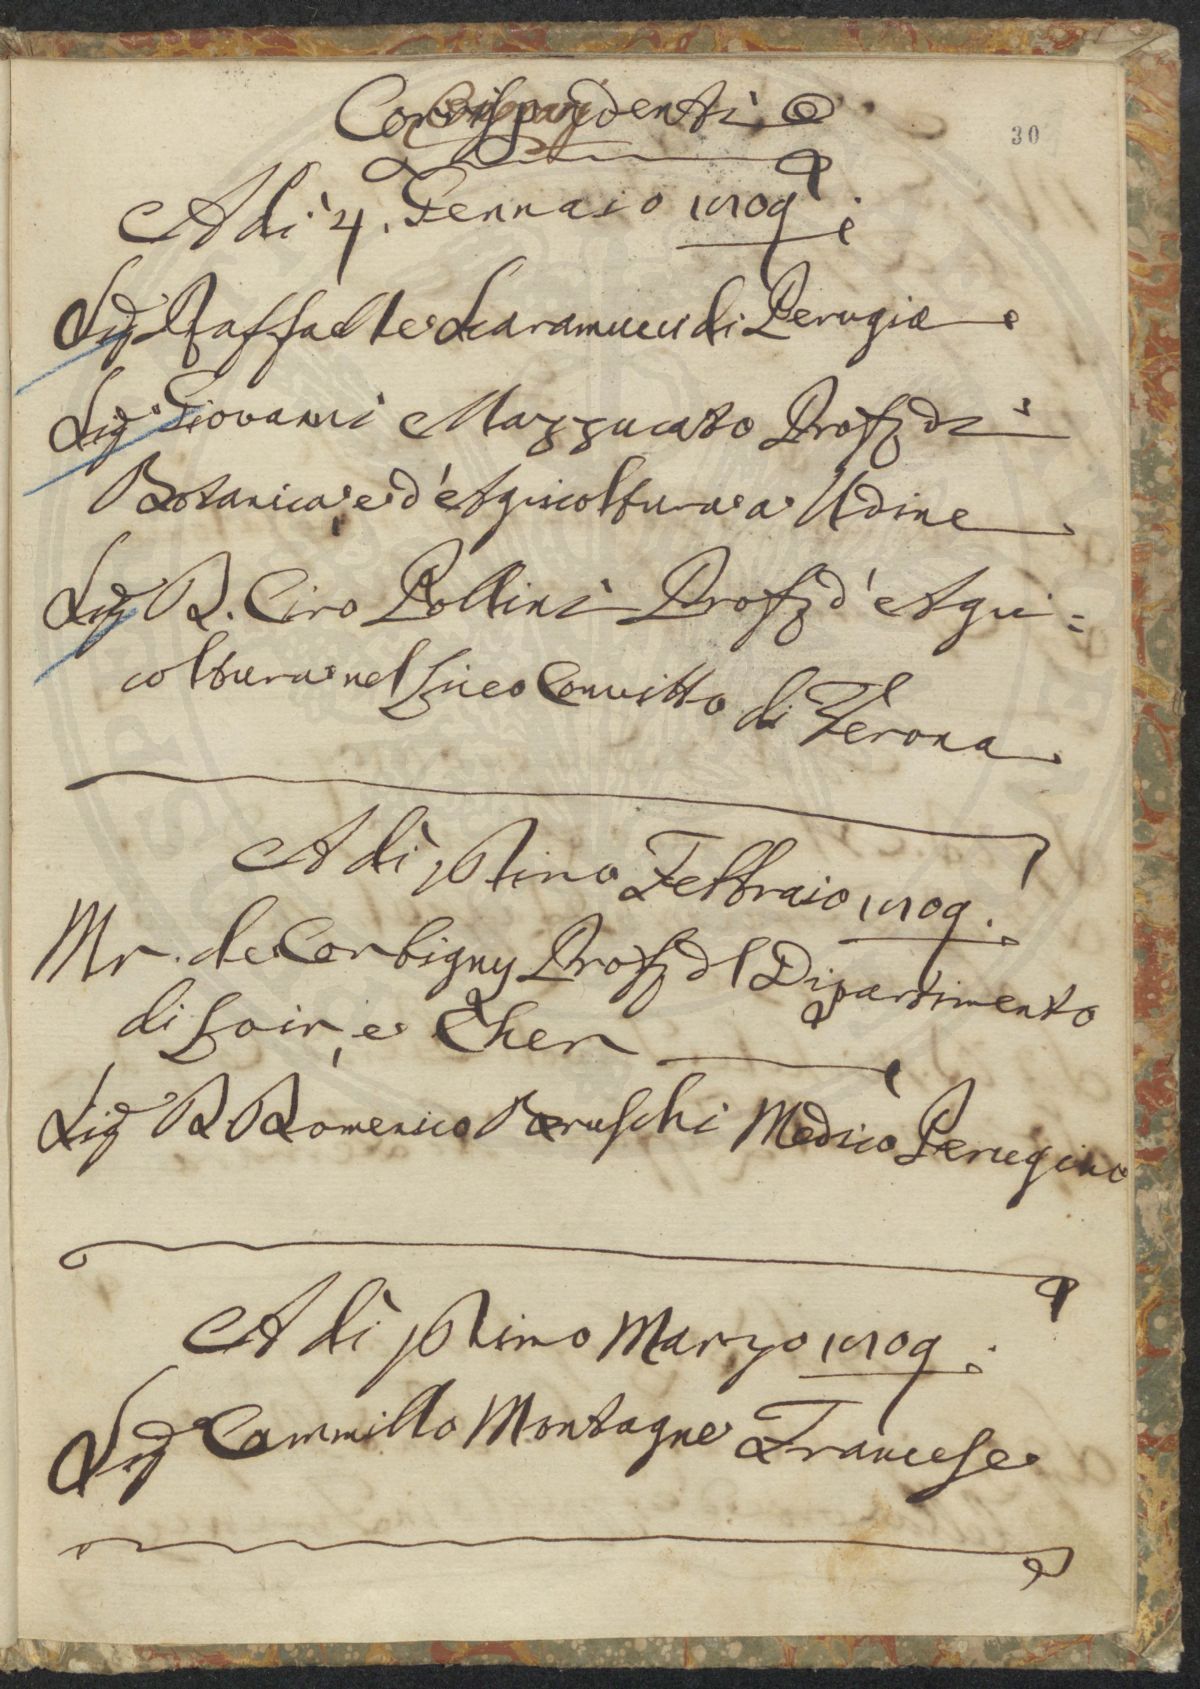 Corrispondenti
30
Adì 4. Gennaio 1809.
Sig.r Raffaelle Scaramucci di Perugia
Sig.r Giovanni Mazzucato Prof.r di
Botanica, e d'Agricoltura a Udine
Sig.r D. Ciro Pollini Prof.r d'Agri=
coltura nel Liceo Convitto di Verona
Adì primo Febbraio 1809.
Mr. de Corbigny Prof. del Dipartimento
di Loir, e Cher
Sig.r D. Domenico Bruschi Medico Perugino
Adì primo Marzo 1809.
Sig.r Cammillo Montagne Francese